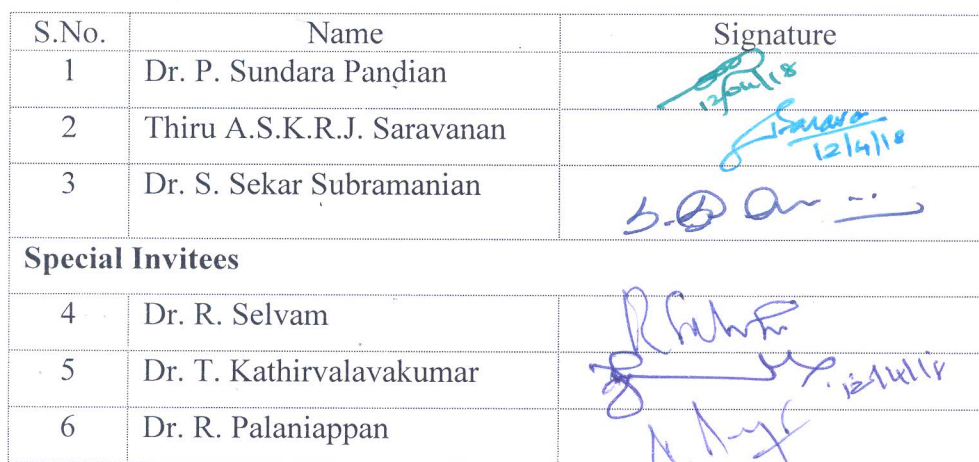 S.No. Name Signature
1 Dr. P. Sundara Pandian 12/04/18
2 Thiru A.S.K.R.J. Saravanan 12/4/18
3 Dr. S. Sekar Subramanian
Special Invitees
4 Dr. R. Selvam
5 Dr. T. Kathirvalavakumar 12/4/18
6 Dr. R. Palaniappan